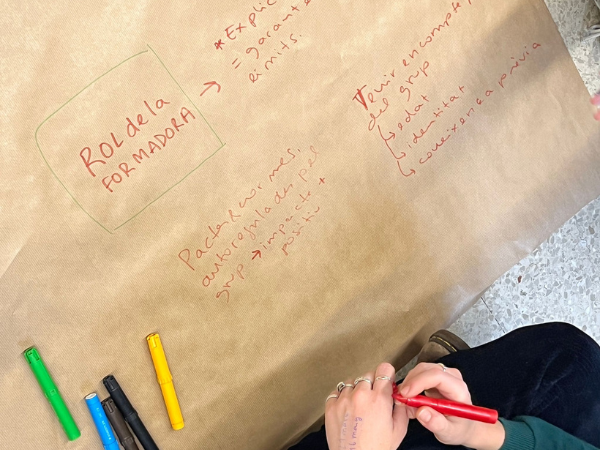 ROL de la
FORMADORA
→ * Explic
= garante
límits.
Tenir en compte
del grup
↳ edat
↳ identitat
↳ coneixença prèvia
Pactar normes,
autoregulades pel
grup → impacte +
positiu